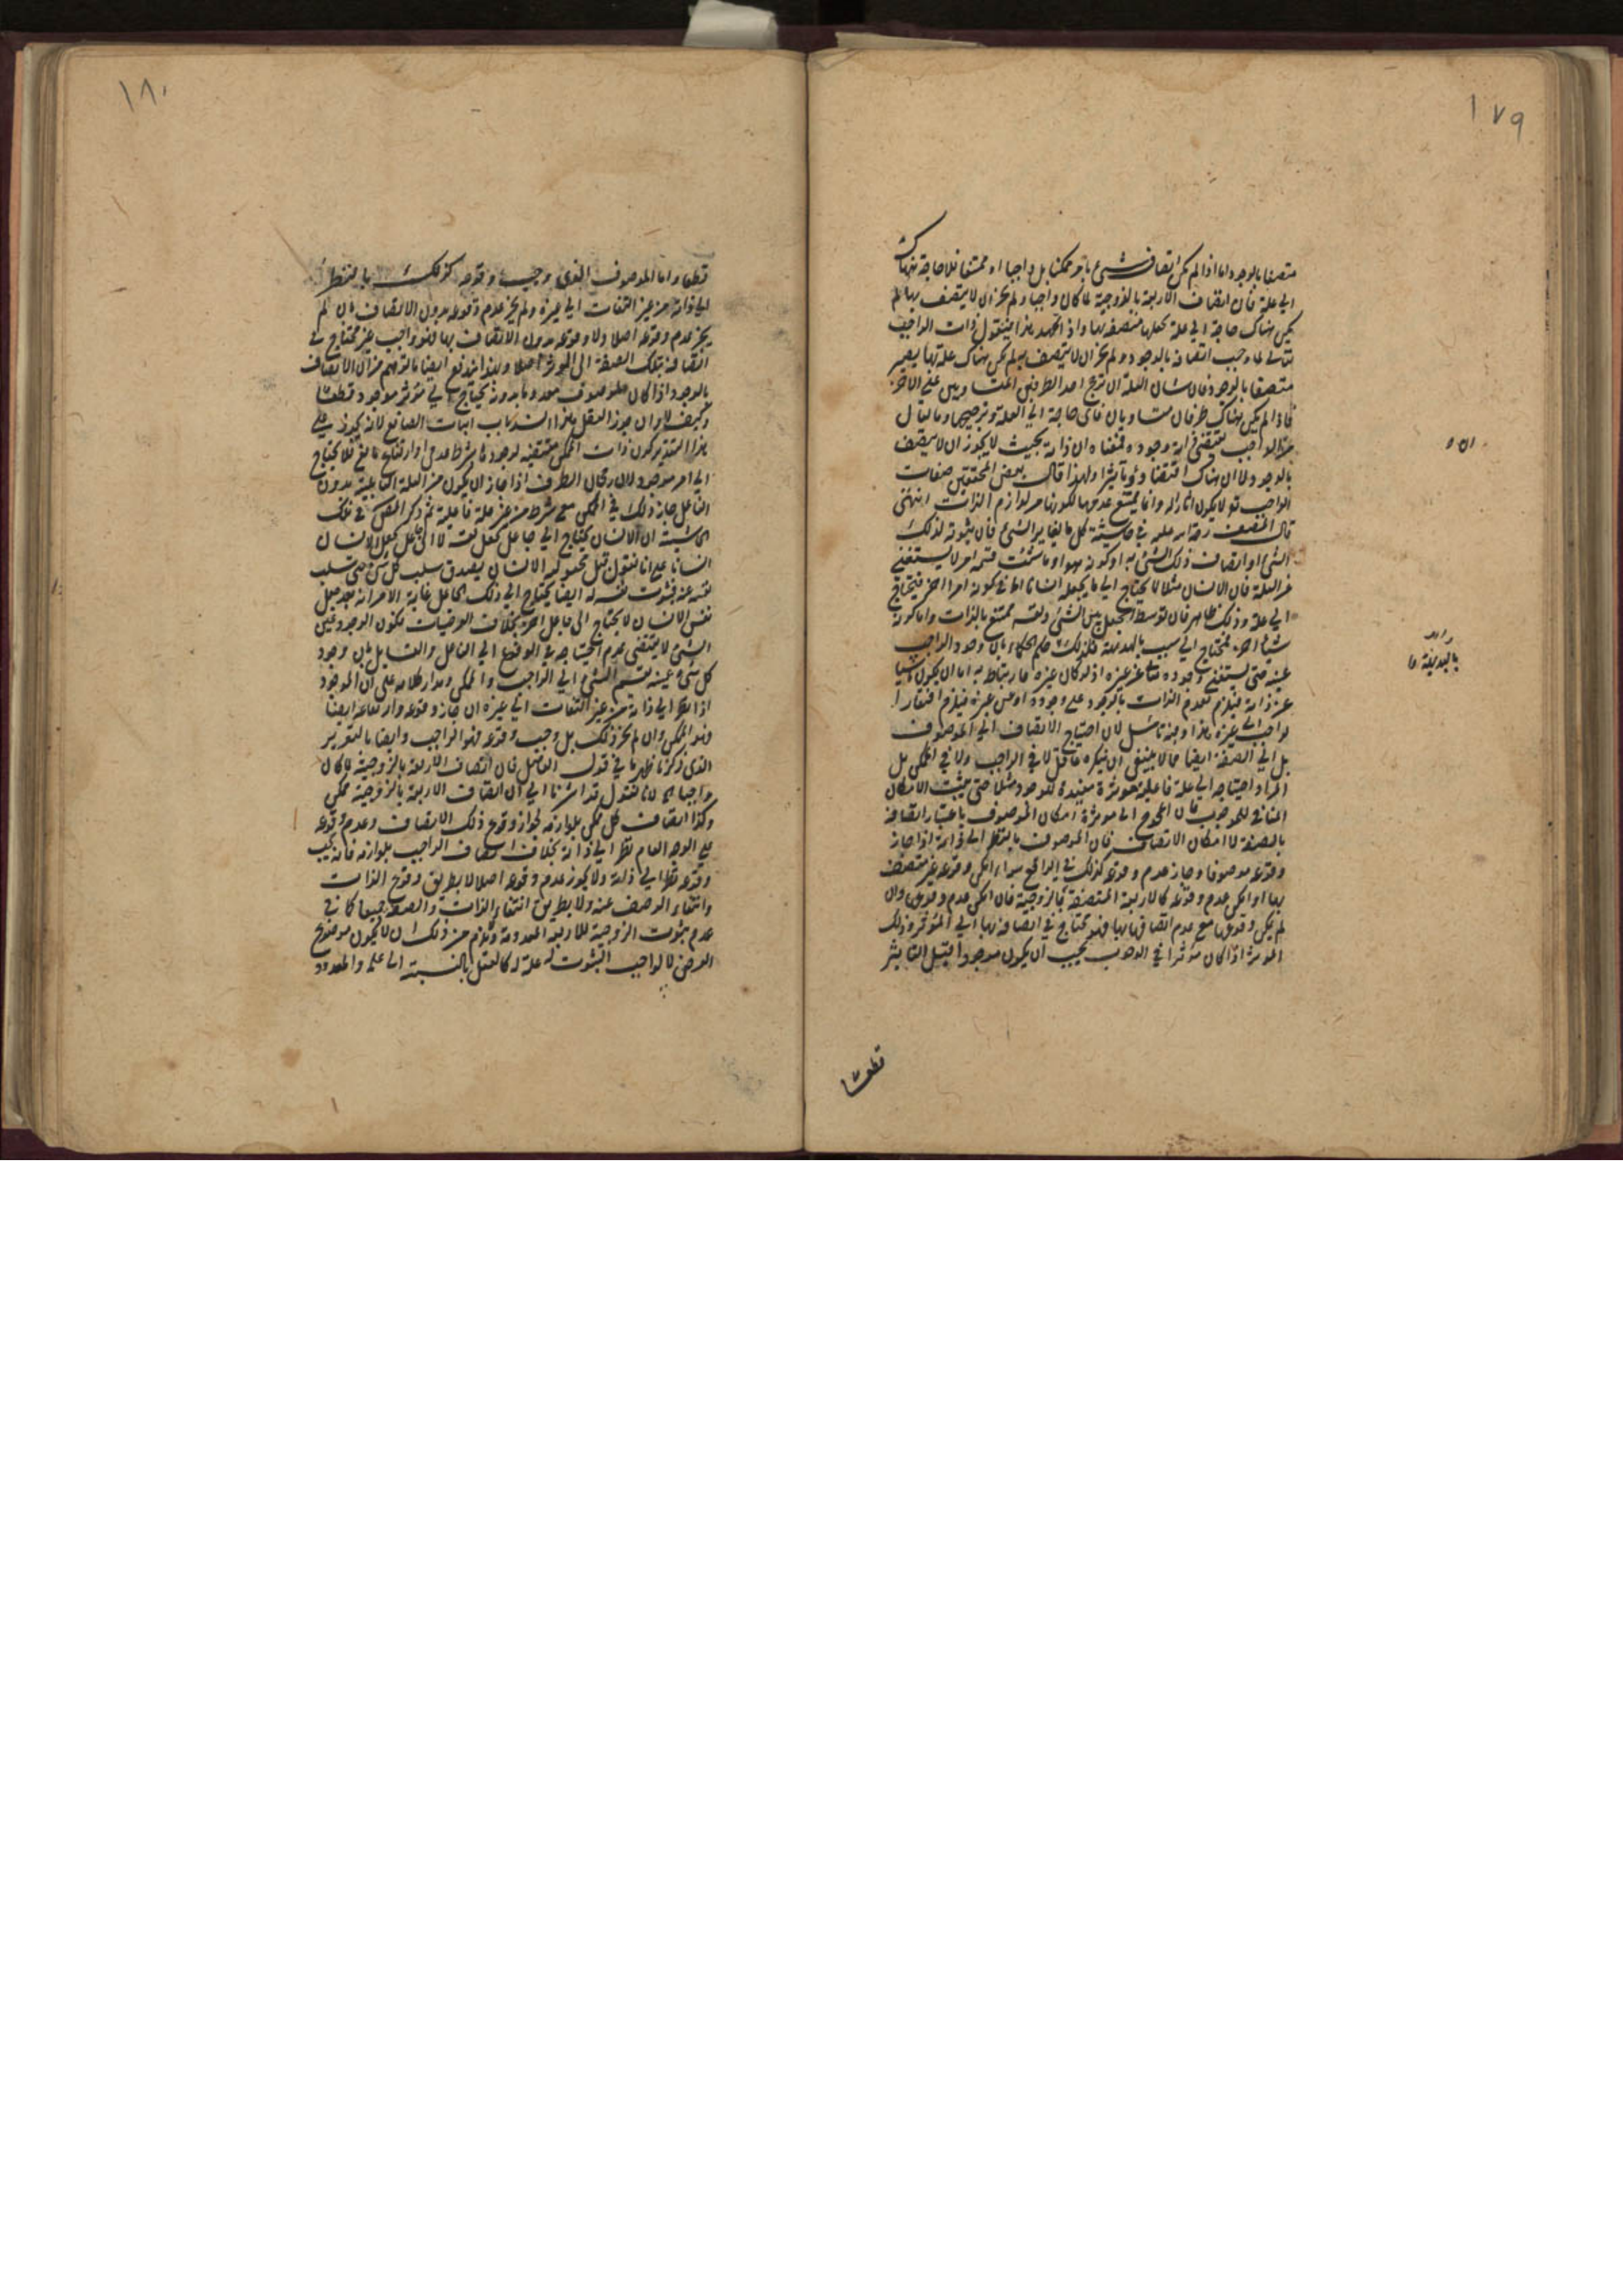 ١٧٩
متصفا بالوجود اما اذا لم يكن اتصاف شئ بامر ممكنا بل واجبا او ممتنعا فلا حاجة هناك
الى علة فان اتصاف الاربعة بالزوجية لما كان واجبا ولم يجز ان لا يتصف بها لم
يكن هناك حاجة الى علة تجعلها متصفة بها واذ تمهد هذا فنقول ذات الواجب
تعالى لما وجب اتصافه بالوجود ولم يجز ان لا يتصف به لم يكن هناك علة بها يصير
متصفا بالوجود فان شان العلة ان ترجح احد الطرفين المتساويين على الاخر
فاذا لم يكن هناك طرفان متساويان فاى حاجة الى العلة وترجيحها وما يقال
من ان الواجب يقتضى ذاته وجوده فمعناه ان ذاته بحيث لا يجوز ان لا يتصف
بالوجود لا ان هناك اقتضاء وتاثيرا ولهذا قال بعض المحققين صفات
الواجب تع لا يكون اثارا له وانما يمتنع عدمها لكونها من لوازم الذات انتهى
قال المصنف رحمة الله عليه فى حاشيته كل ما يغاير الشئ فان ثبوته لذلك
الشئ او اتصاف ذلك الشئ به او كونه هو او ما شئت فسمه امر لا يستغنى
عن العلة فان الانسان مثلا لا يحتاج الى ما يجعله انسانا اما فى كونه امرا اخر فيحتاج
الى علة وذلك ظاهر فان توسط الجعل بين الشئ ونفسه ممتنع بالذات واما كونه
شيئا اخر فمحتاج الى سبب بالبديهة فلذلك حكم الحكماء بان وجود الواجب
عينه حتى يستغنى وجوده تعالى عن غيره اذ لو كان غيره فارتباطه به اما ان يكون ناشيا
عن ذاته فيلزم تقدم الذات بالوجود على وجوده او من غيره فيلزم افتقار
الواجب الى غيره هذا وفيه تامل لان احتياج الاتصاف الى الموصوف
بل الى الصفة ايضا مما لا ينبغى ان ينكره عاقل لا فى الواجب ولا فى الممكن بل
المراد احتياجه الى علة فاعلية مؤثرة مفيدة للوجود مثلا حتى يثبت الامكان
المنافى للوجوب فان المحوج الى مؤثره امكان الموصوف باعتبار اتصافه
بالصفة لا امكان الاتصاف فان الموصوف بالنظر الى ذاته اذا جاز
وقوعه موصوفا وجاز عدم وقوعه كذلك فى الواقع سواء امكن وقوعه غير متصف
بها او امكن عدم وقوعه كالاربعة المتصفة بالزوجية فان امكن عدم وقوعها وان
لم يمكن وقوعها مع عدم اتصافها بها فهو محتاج فى اتصافه بها الى المؤثر وذلك
المؤثر اذا كان مؤثرا فى الوجوب يجب ان يكون موجودا قبل التاثير
قطعا
بالبديهة
١٨٠
قطعا واما الموصوف الذى وجب وقوعه كذلك بالنظر
الى ذاته من غير التفات الى غيره ولم يجز عدم وقوعه بدون الاتصاف بان لم
يجز عدم وقوعه اصلا ولا وقوعه بدون الاتصاف بها فهو واجب غير محتاج فى
اتصافه بتلك الصفة الى المؤثر اصلا وبهذا اندفع ايضا ما توهم من ان الاتصاف
بالوجود اذا كان الموصوف معدوما بدونه يحتاج الى مؤثر موجود قطعا
وكيف لا وان جوز العقل هذا انسد باب اثبات الصانع لانه يجوز على
هذا التقدير كون ذات الممكن مقتضيه لوجوده بشرط عدمى او ارتفاع مانع فلا يحتاج
الى امر موجود لان رجحان الطرف اذا جاز ان يكون من العلة القابلية بدون
الفاعل جاز ذلك فى الممكن مع شرط من غير علة فاعلية ثم ذكر المص فى تلك
الحاشية ان الانسان يحتاج الى جاعل يجعل نفسه لا الى جاعل يجعل الانسان
انسانا على انا نقول قبل تحقق الانسان يصدق سلب كل شئ حتى سلب
نفسه عنه فثبوت نفسه له ايضا يحتاج الى ذلك الجاعل غاية الامر انه بعد جعل
نفس الانسان لا يحتاج الى جاعل اخر بخلاف العرضيات فكون الوجود عين
الشئ لا يقتضى عدم احتياجه فى الوقوع الى الفاعل والقابل بان وجود
كل شئ عينه يقسم الشئ الى الواجب والممكن ومدار كلامه على ان الموجود
اذا نظر الى ذاته من غير التفات الى غيره ان جاز وقوعه وارتفاعه ايضا
فهو الممكن وان لم يجز ذلك بل وجب وقوعه فهو الواجب وايضا بالتقرير
الذى ذكرنا ظهر ما فى قول الفاضل فان اتصاف الاربعة بالزوجية لما كان
واجبا الخ لانا نقول قد اشرنا الى ان اتصاف الاربعة بالزوجية ممكن
وكذا اتصاف كل ممكن بلوازمه لجواز وقوع ذلك الاتصاف وعدم وقوعه
على الوجه العام نظرا الى ذاته بخلاف اتصاف الواجب بلوازمه فانه يجب
وقوعه نظرا الى ذاته ولا يجوز عدم وقوعه اصلا لا بطريق وقوع الذات
وانتفاء الوصف عنه ولا بطريق انتفاء الذات والصفة جميعا كما فى
عدم ثبوت الزوجية للاربعة المعدومة ويلزم من ذلك ان لا يكون موضوع
العرضى الواجب الثبوت له علة له كالعقل بالنسبة الى علمه والمعدود